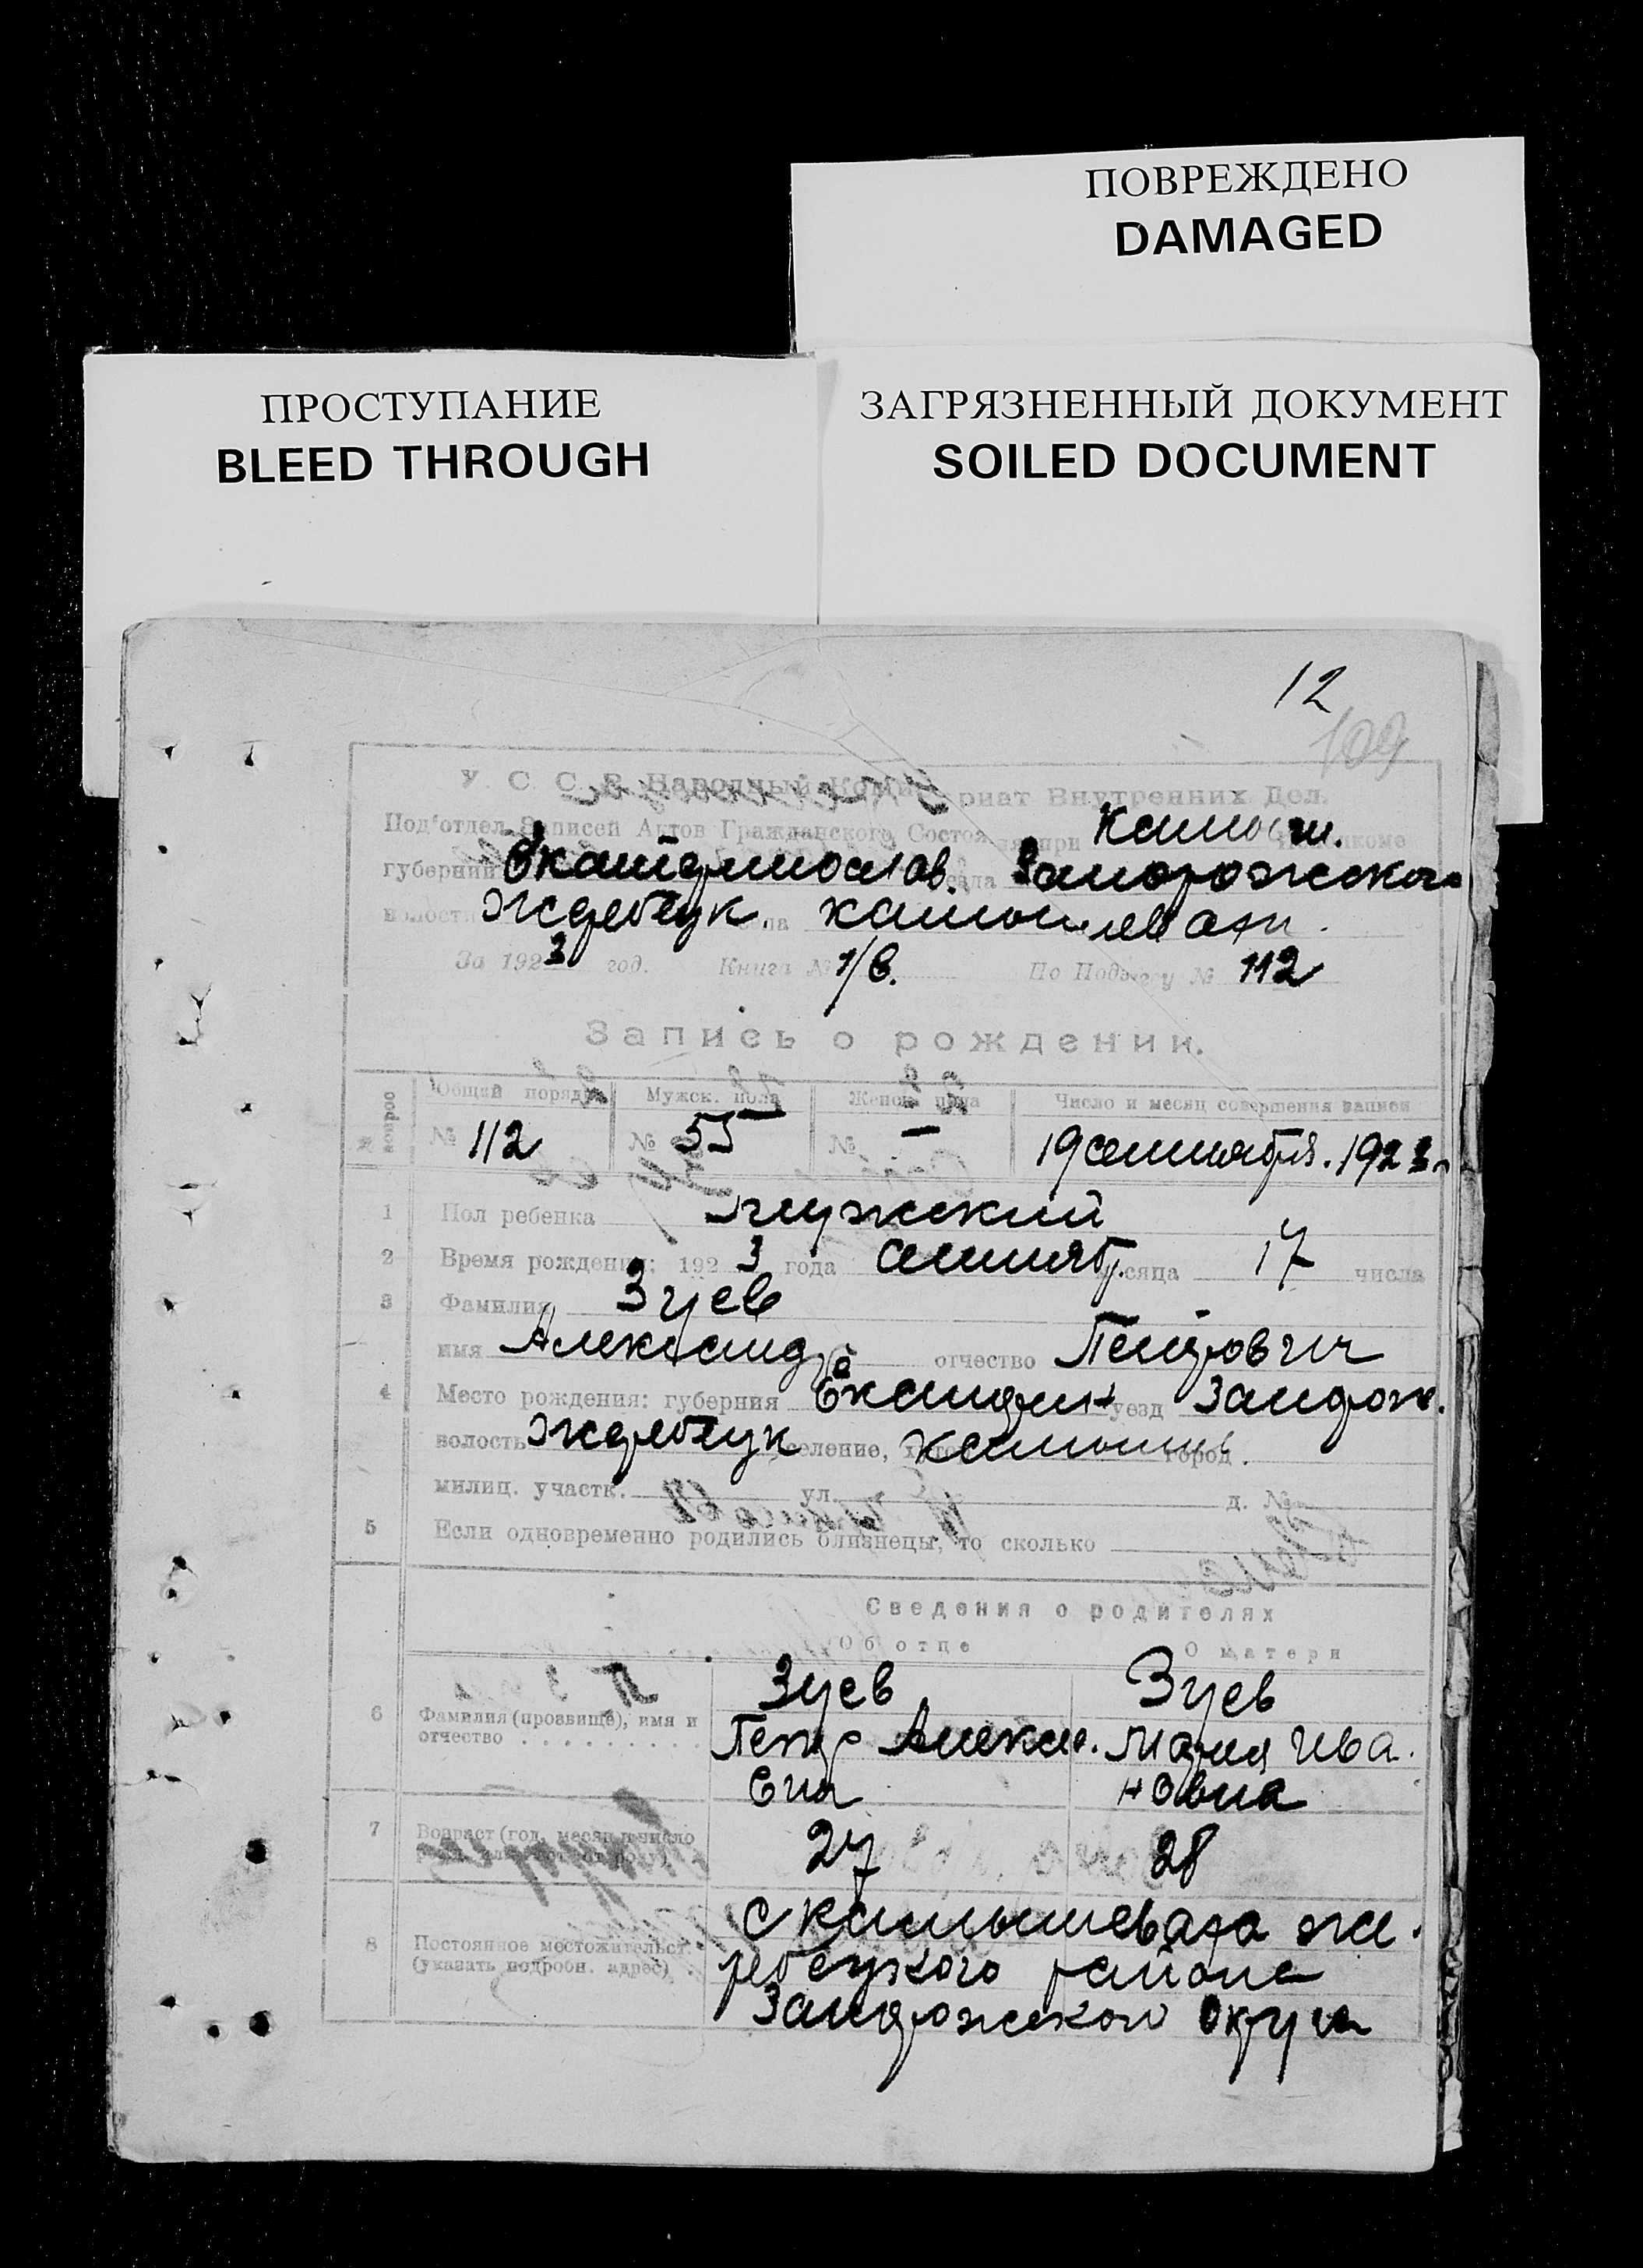 ПОВРЕЖДЕНО
DAMAGED
ПРОСТУПАНИЕ
BLEED THROUGH
ЗАГРЯЗНЕННЫЙ ДОКУМЕНТ
SOILED DOCUMENT
12
109
У. С. С. Р. Народный Комиссариат Внутренних Дел.
Под'отдел Записей Актов Гражданского Состояния при Камыш. Исполкоме
губернии Екатеринослав. уезда Запорожского
волости Жеребецк. села Камышеваха
За 1923 год. Книга № 1/в. По Подлсу № 112
Запись о рождении.
№ вопрос Общий порядк. Мужск. пола Женск. пола Число и месяц совершения записи
№ 112 № 55 № — 19 сентября. 1923 г.
1 Пол ребенка мужский
2 Время рождения: 1923 года сентябр. месяца 17 числа
3 Фамилия Зуев
имя Александр отчество Петрович
4 Место рождения: губерния Екатерин уезд Запорож.
волость Жеребецк селение, Камышев город.
милиц. участк. ул. д. №
5 Если одновременно родились близнецы, то сколько
Сведения о родителях
Об отце О матери
6 Фамилия (прозвище), имя и отчество Зуев Зуев
Петр Алексе. Мария Ива.
Евич новна
7 Возраст (год, месяц и число 27 28
8 Постоянное местожительст. (указать подробн. адрес) С Камышеваха Же.
ребецкого района
Запорожского Округа